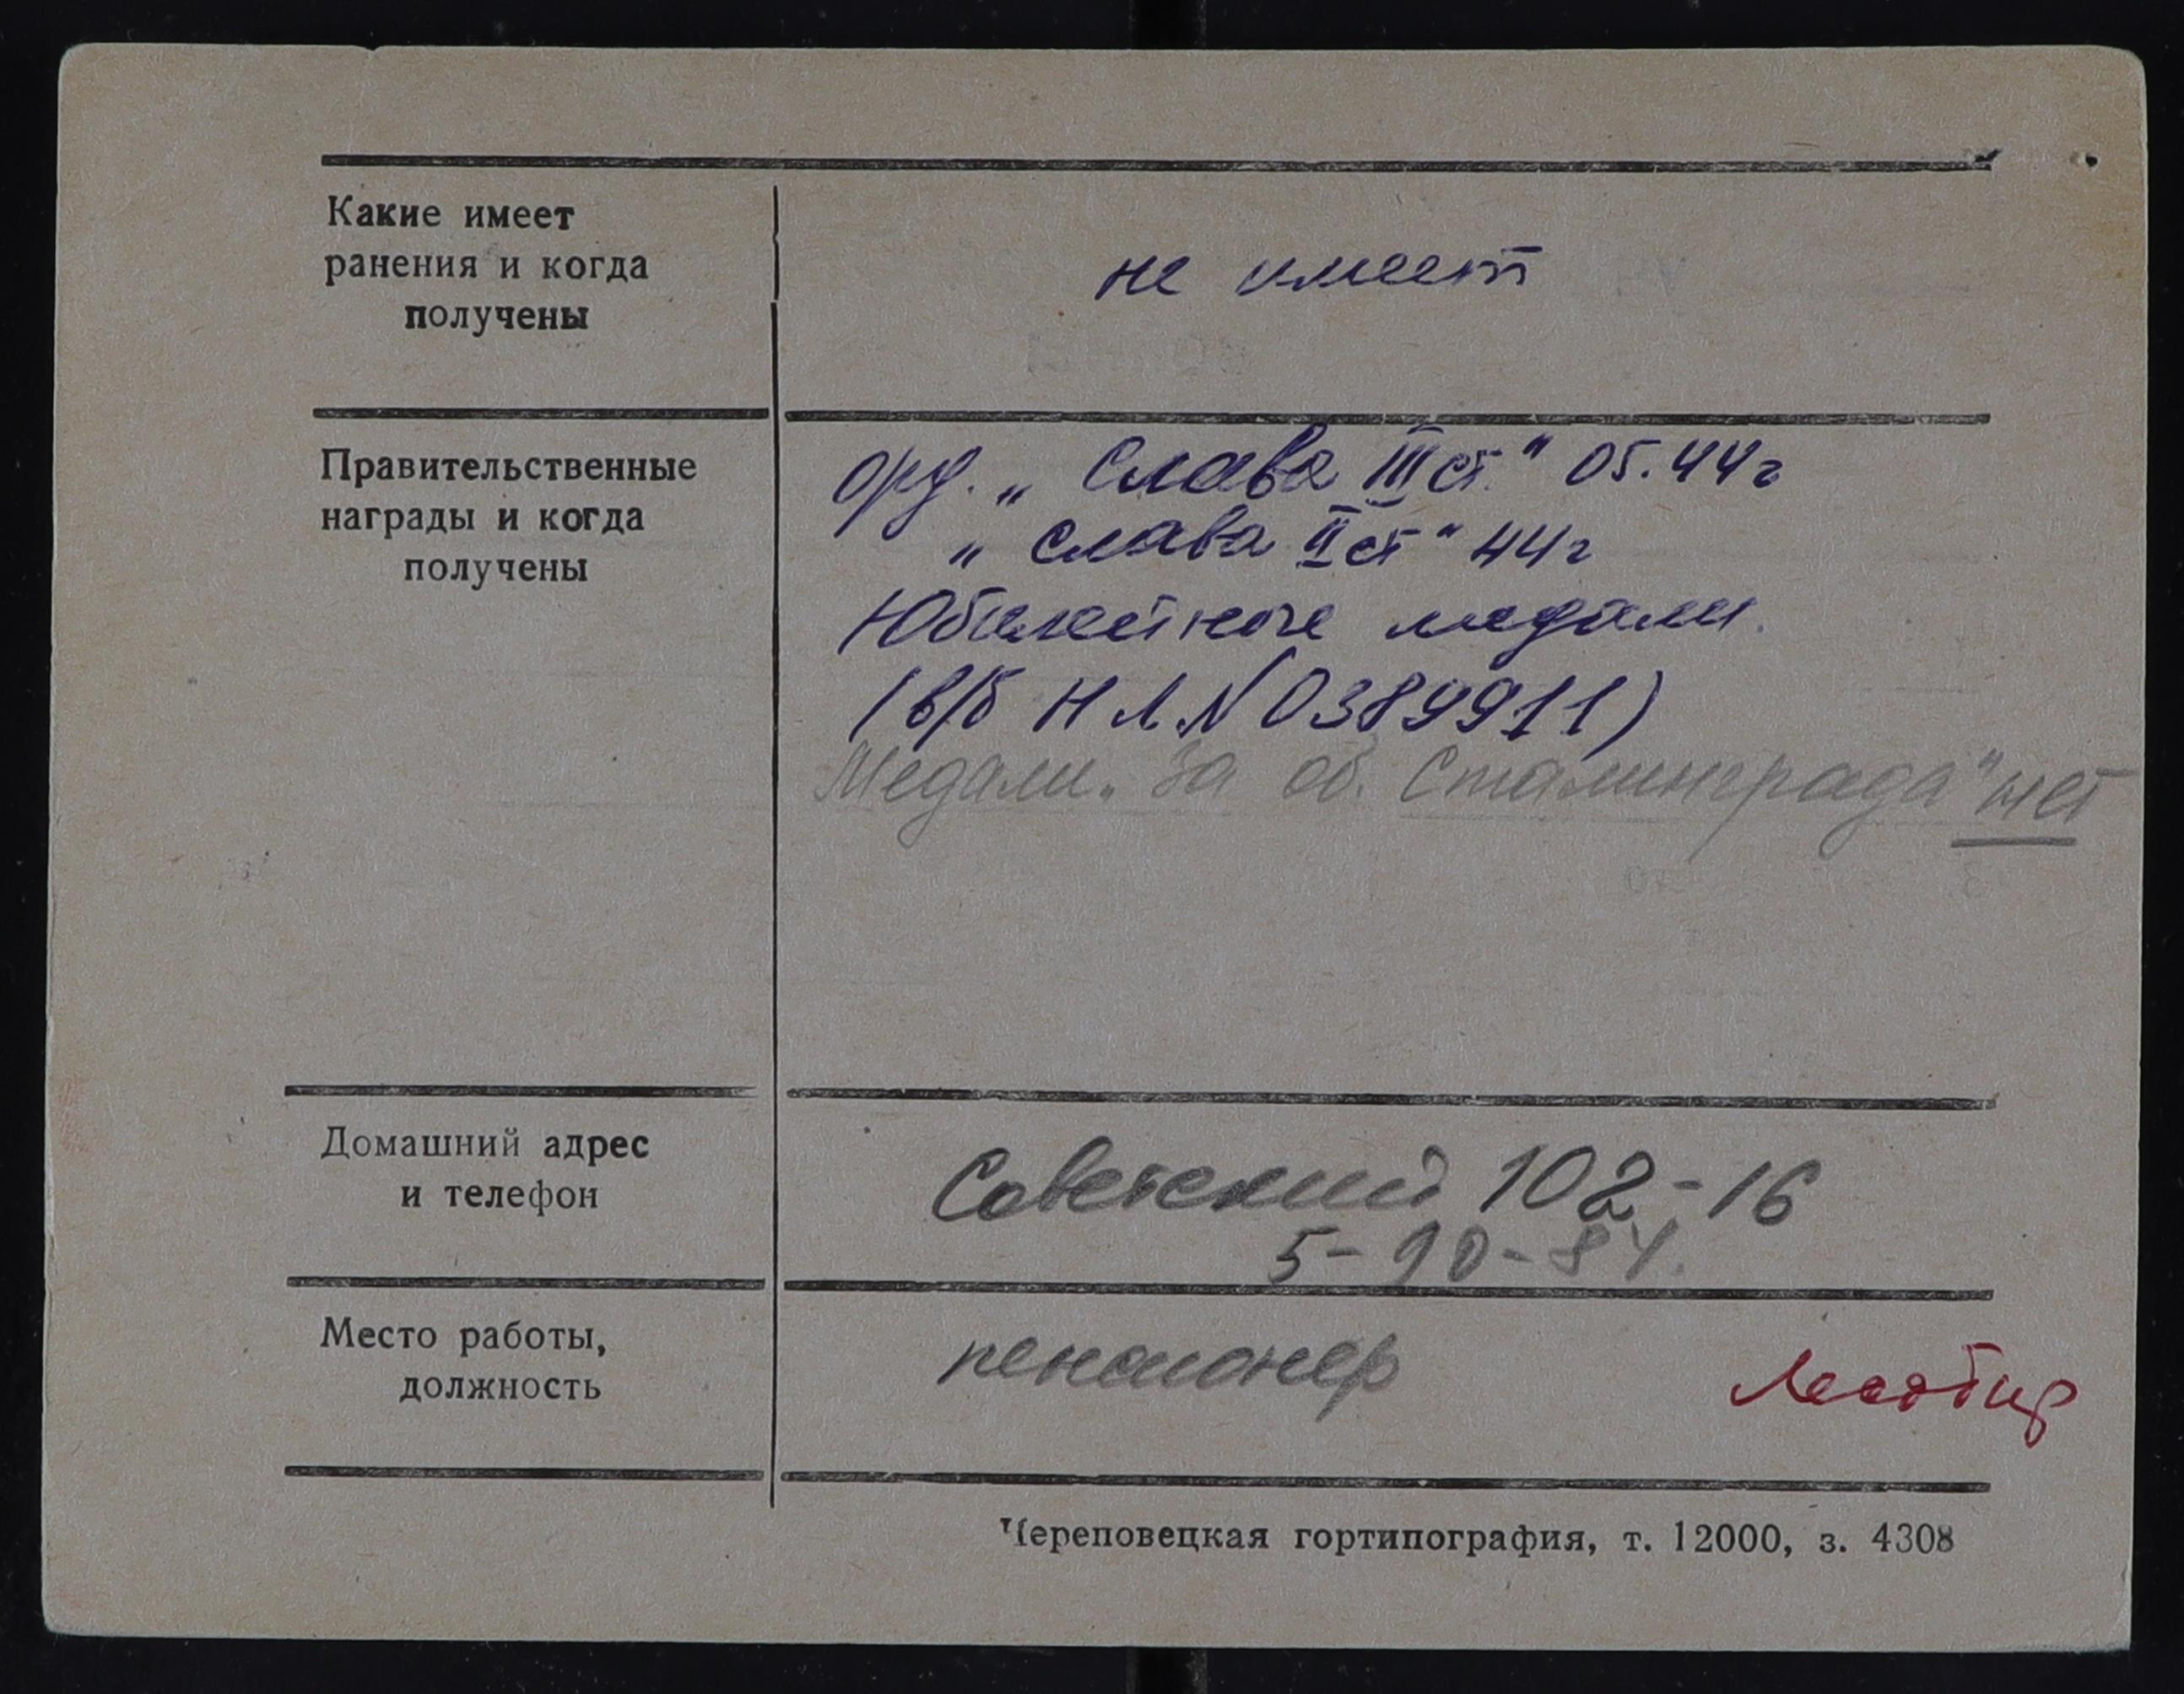 Какие имеет
ранения и когда
получены
не имеет
Правительственные
награды и когда
получены
орд. „Слава III ст." 05.44г
„Слава II ст" 44г
Юбилейные медали.
(в/б НЛ N 0389911)
Медали „За об. Сталинграда" нет
Домашний адрес
и телефон
Советский 102-16
5-90-84.
Место работы,
должность
пенсионер
Череповецкая гортипография, т. 12000, з. 4308